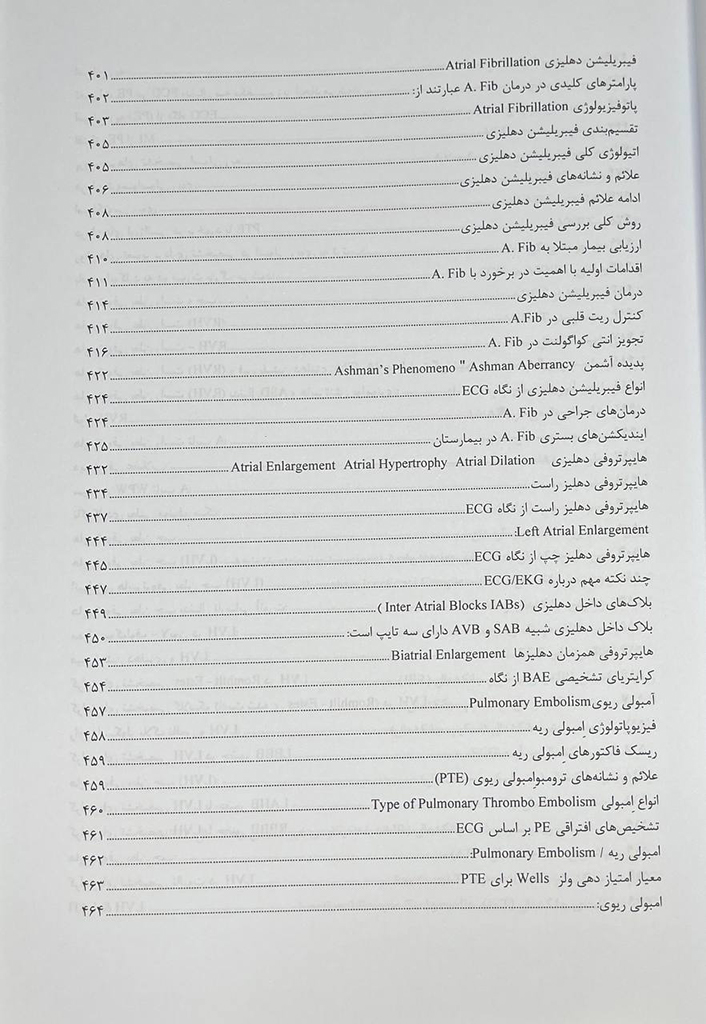 فیبریلیشن دهلیزی Atrial Fibrillation ۴۰۱
پارامترهای کلیدی در درمان A. Fib عبارتند از: ۴۰۲
پاتوفیزیولوژی Atrial Fibrillation ۴۰۳
تقسیم‌بندی فیبریلیشن دهلیزی ۴۰۵
اتیولوژی کلی فیبریلیشن دهلیزی ۴۰۵
علائم و نشانه‌های فیبریلیشن دهلیزی ۴۰۶
ادامه علائم فیبریلیشن دهلیزی ۴۰۸
روش کلی بررسی فیبریلیشن دهلیزی ۴۰۸
ارزیابی بیمار مبتلا به A. Fib ۴۱۰
اقدامات اولیه با اهمیت در برخورد با A. Fib ۴۱۱
درمان فیبریلیشن دهلیزی ۴۱۴
کنترل ریت قلبی در A.Fib ۴۱۴
تجویز انتی کواگولنت در A. Fib ۴۱۶
پدیده آشمن Ashman's Phenomeno " Ashman Aberrancy ۴۲۲
انواع فیبریلیشن دهلیزی از نگاه ECG ۴۲۴
درمان‌های جراحی در A. Fib ۴۲۴
ایندیکشن‌های بستری A. Fib در بیمارستان ۴۲۵
هایپرتروفی دهلیزی Atrial Enlargement Atrial Hypertrophy Atrial Dilation ۴۳۲
هایپرتروفی دهلیز راست ۴۳۴
هایپرتروفی دهلیز راست از نگاه ECG ۴۳۷
Left Atrial Enlargement: ۴۴۴
هایپرتروفی دهلیز چپ از نگاه ECG ۴۴۵
چند نکته مهم درباره ECG/EKG ۴۴۷
بلاک‌های داخل دهلیزی (Inter Atrial Blocks IABs ) ۴۴۹
بلاک داخل دهلیزی شبیه SAB و AVB دارای سه تایپ است: ۴۵۰
هایپرتروفی همزمان دهلیزها Biatrial Enlargement ۴۵۳
کرایتریای تشخیصی BAE از نگاه ۴۵۴
آمبولی ریوی Pulmonary Embolism ۴۵۷
فیزیوپاتولوژی اِمبولی ریه ۴۵۸
ریسک فاکتورهای اِمبولی ریه ۴۵۹
علائم و نشانه‌های ترومبوامبولی ریوی (PTE) ۴۵۹
انواع اِمبولی Type of Pulmonary Thrombo Embolism ۴۶۰
تشخیص‌های افتراقی PE بر اساس ECG ۴۶۱
اِمبولی ریه / Pulmonary Embolism: ۴۶۲
معیار امتیاز دهی ولز Wells برای PTE ۴۶۳
امبولی ریوی: ۴۶۴